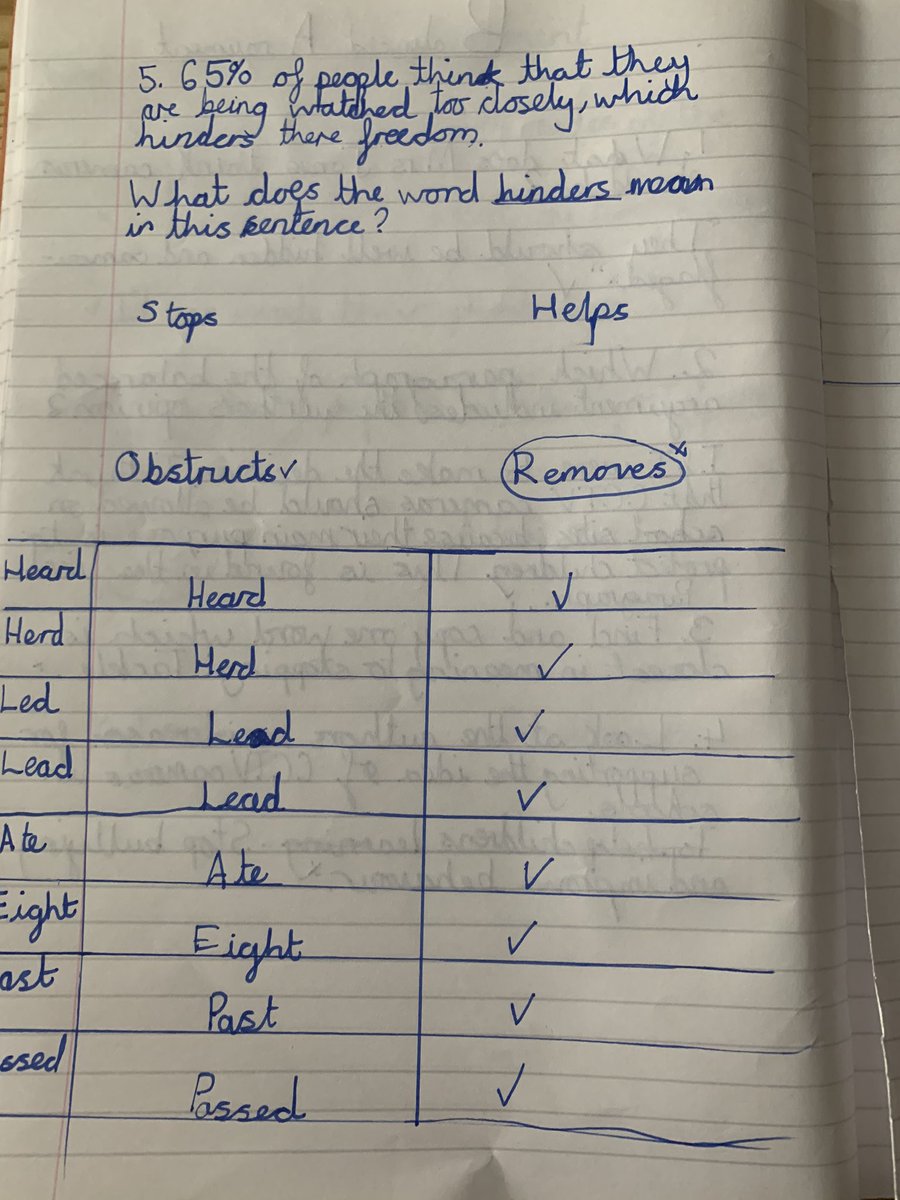 5. 65% of people think that they
are being watched too closely, which
hinders there freedom.
What does the word hinders mean
in this sentence?
Stops Helps
Obstructs✓ Removes x
Heard Heard ✓
Herd Herd ✓
Led Lead ✓
Lead Lead ✓
Ate Ate ✓
Eight Eight ✓
ast Past ✓
ssed Passed ✓